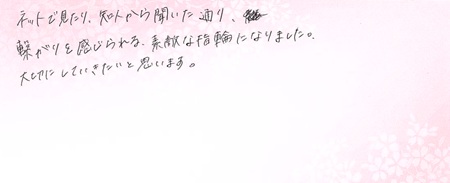 ネットで見たり、知人から聞いた通り、
繋がりを感じられる、素敵な指輪になりました。
大切にしていきたいと思います。